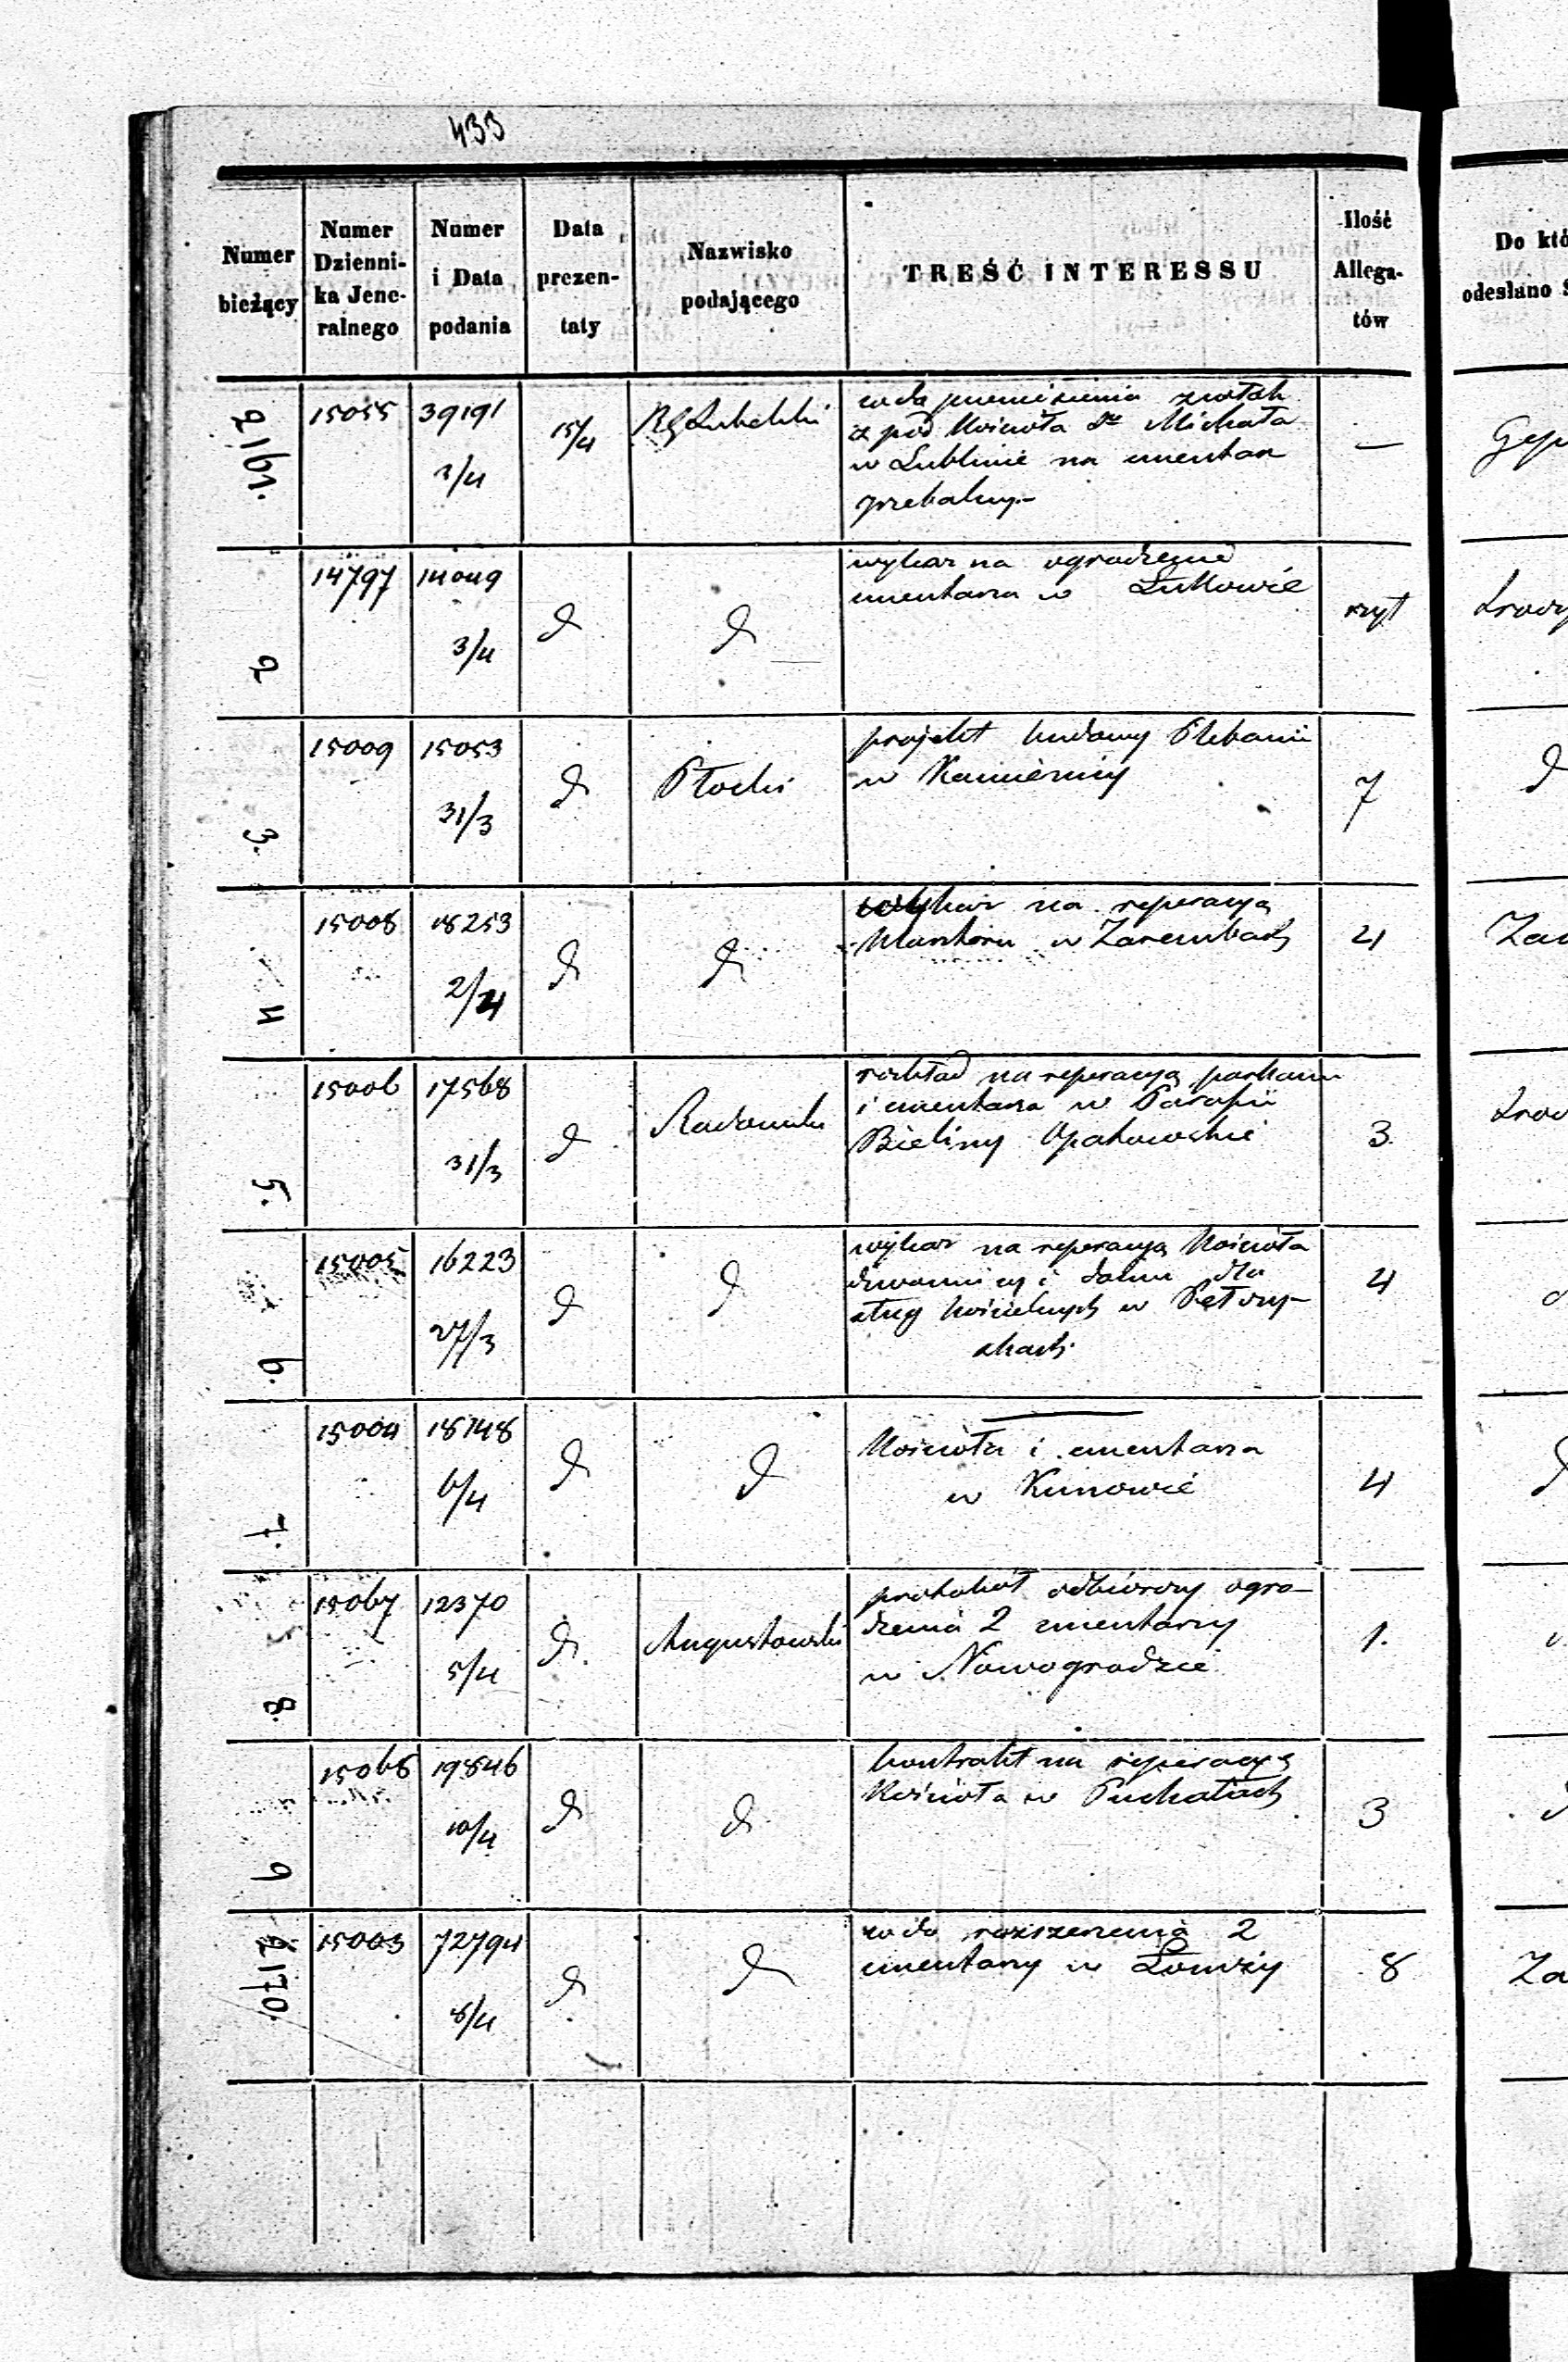 433
Numer bieżący
Numer Dzienni-ka Jene-ralnego
Numer i Data podania
Data prezen-taty
Nazwisko podającego
TREŚĆ INTERESSU
Ilość Allega-tów
Do któ
odesłano
2161.
15055
39191
2/4
15/4
RG Lubelski
wda przeniesienia zwłok
z pod Kościoła Sgo Michała
w Lublinie na cmentarz
grzebalny.-
—
2
14797
14049
3/4
d
d
wykaz na ogrodzenie
cmentarza w Łukowie
szyt
3.
15009
15053
31/3
d
Płocki
projekt budowy Plebanii
w Kamienicy
7
d
4
15008
18253
2/4
d
d
wykaz na reperacyą
Klasztoru w Zarembach
4
5.
15006
17568
31/3
d
Radomski
rozkład na reperacyą parkanu
i cmentarza w Parafii
Bieliny Opatowskie
3
6.
15005
16223
27/3
d
d
wykaz na reperacyą Kościoła
dzwonnicy i domu dla
sług kościelnych w Pętkow-
skach
4
7.
15004
18748
6/4
d
d
—
Kościoła i cmentarza
w Kunowie
4
d
8.
15067
12370
5/4
d
Augustowski
protokół odbiorczy ogro-
dzenia 2 cmentarzy
w Nowogrodzie
1.
9
15068
19846
10/4
d
d
kontrakt na reperacyą
Kościoła w Puchałach
3
2170.
15003
72794
8/4
d
d
wda rozszerzenia 2
cmentarzy w Łomży
8